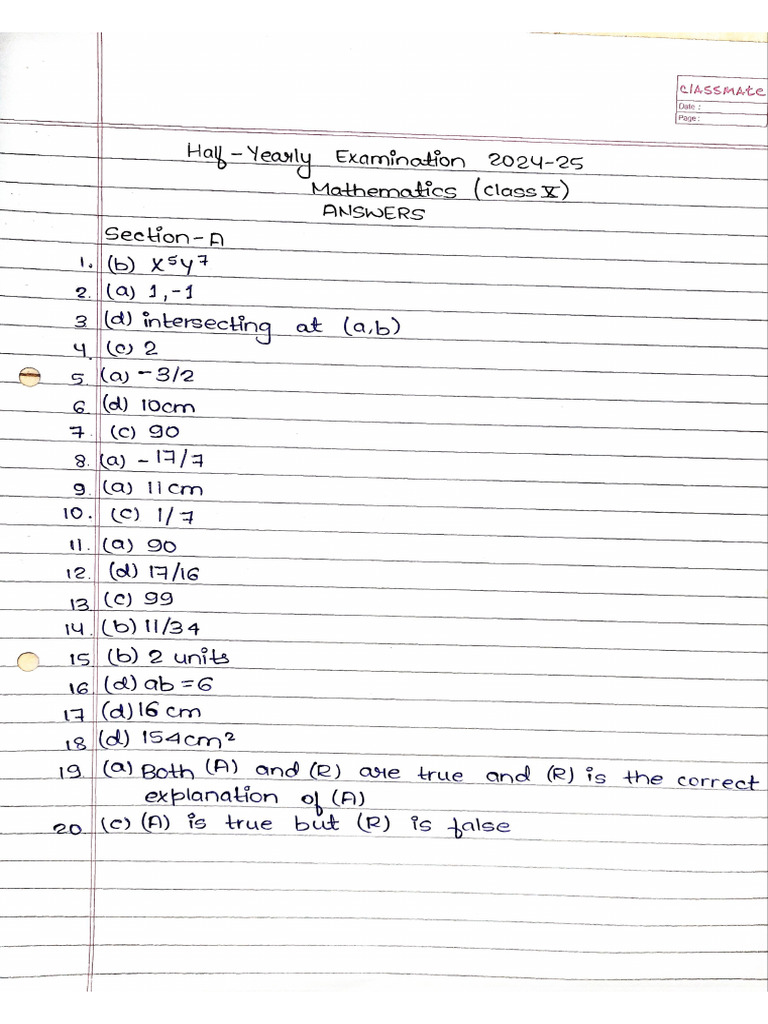 classmate
Date :
Page :
Half-Yearly Examination 2024-25
Mathematics (class X)
ANSWERS
Section-A
1. (b) x⁵y⁷
2. (a) 1,-1
3 (d) intersecting at (a,b)
4. (c) 2
5. (a) -3/2
6. (d) 10cm
7. (c) 90
8. (a) -17/7
9. (a) 11cm
10. (c) 1/7
11. (a) 90
12. (d) 17/16
13 (c) 99
14. (b) 11/34
15 (b) 2 units
16 (d) ab=6
17 (d) 16 cm
18 (d) 154cm²
19. (a) Both (A) and (R) are true and (R) is the correct
explanation of (A)
20. (c) (A) is true but (R) is false